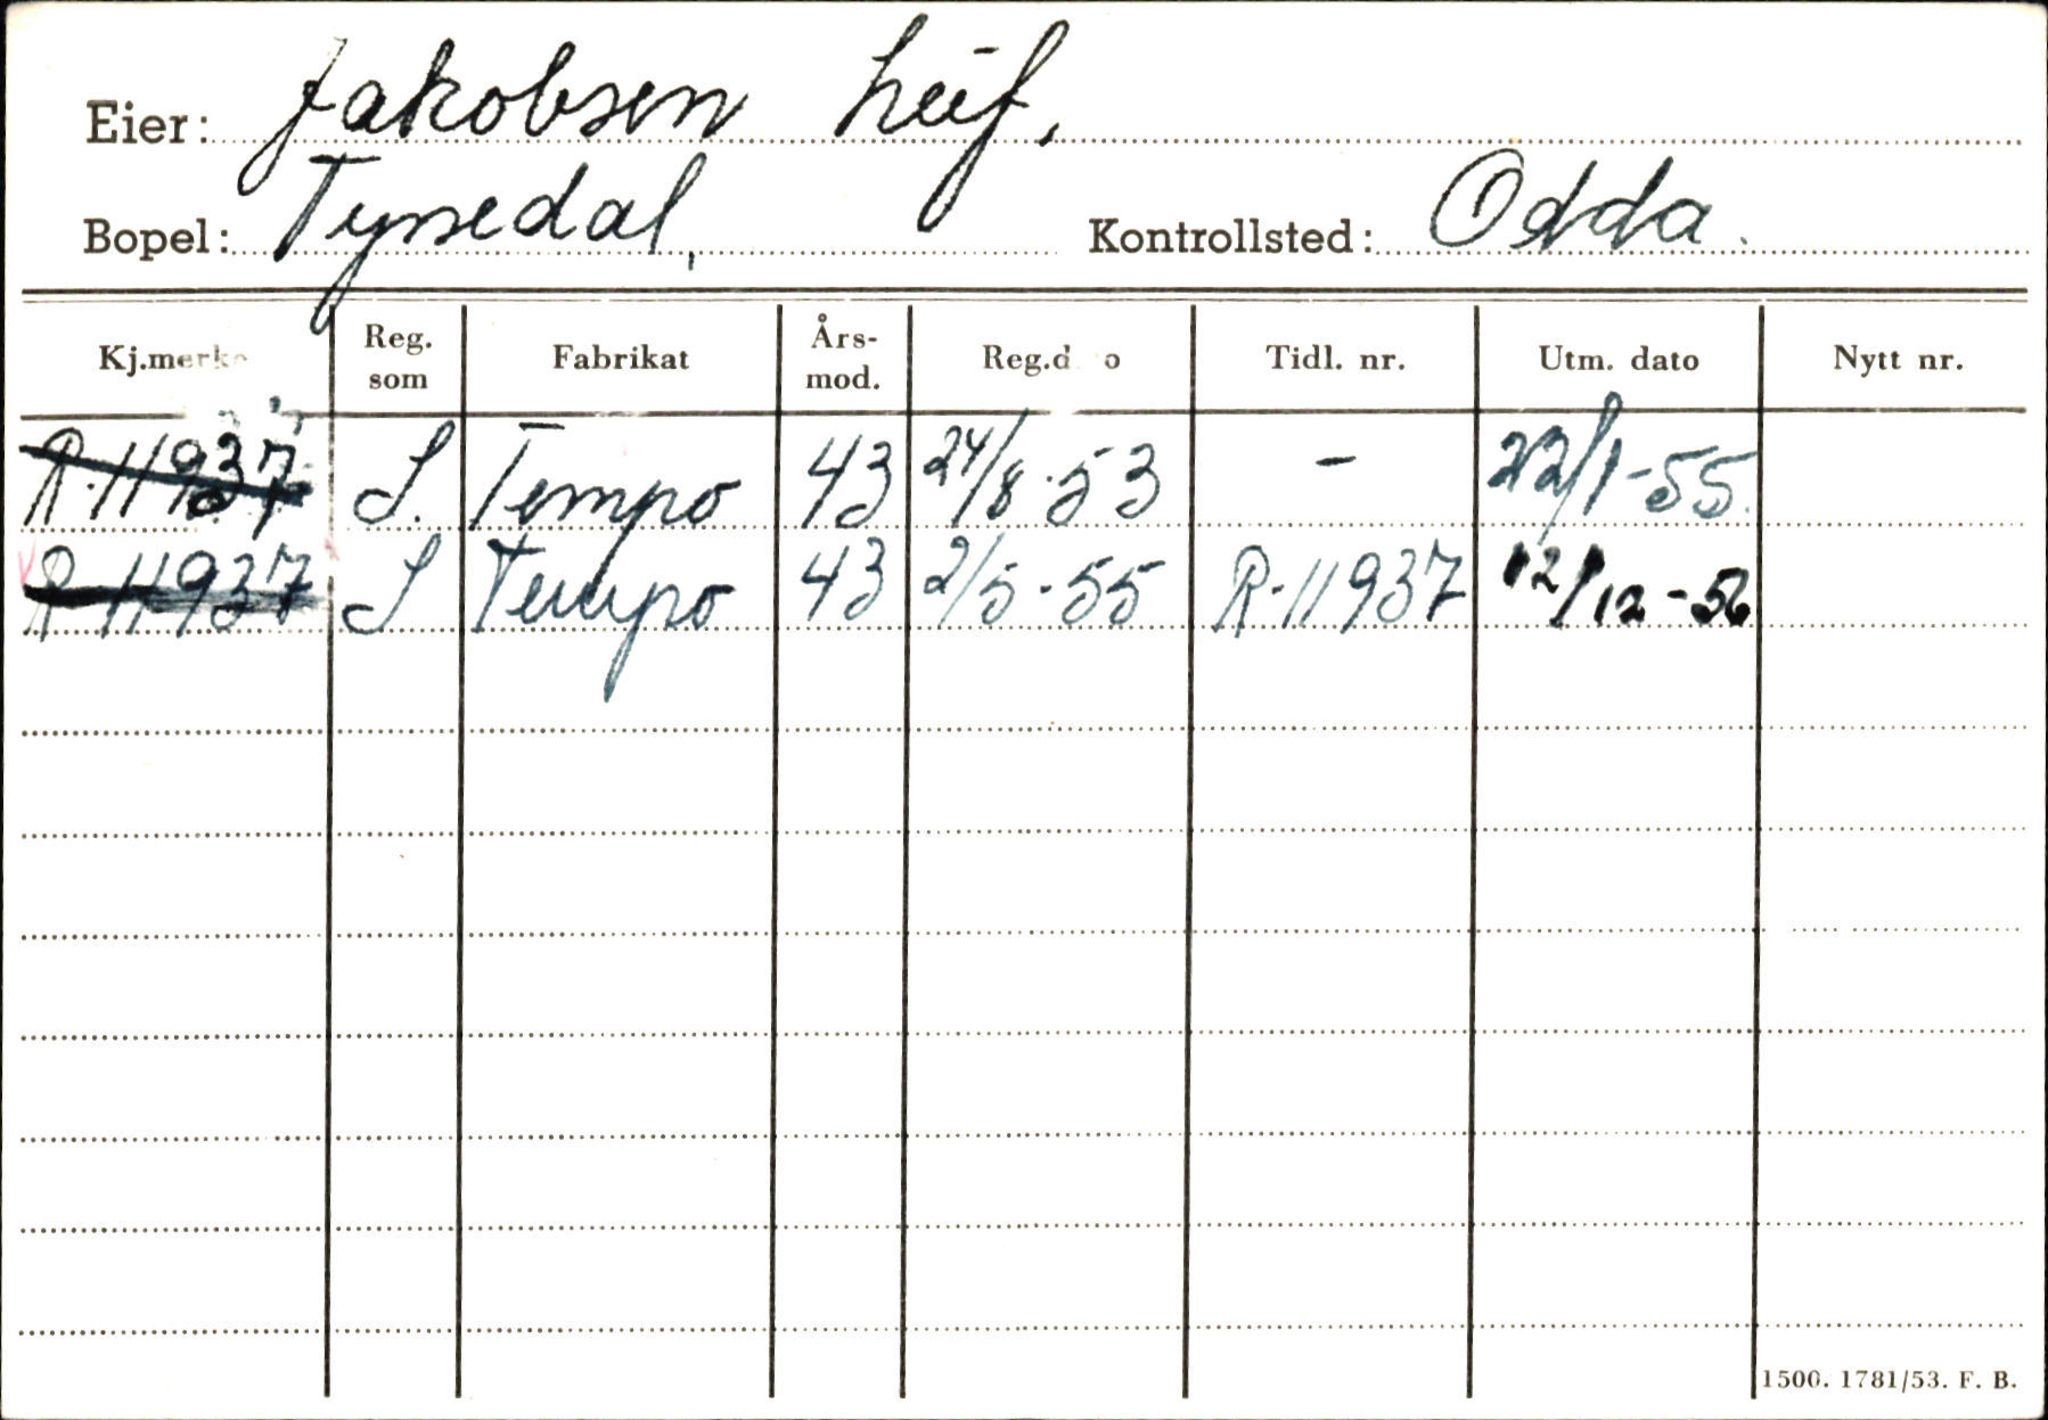 Eier: Jakobsen Leif.
Bopel: Tyssedal, Kontrollsted: Odda.
Kj.merke Reg. som Fabrikat Års-mod. Reg.dato Tidl. nr. Utm. dato Nytt nr.
R-11937 S. Tempo 43 24/8-53 - 22/1-55.
R-11937 S Tempo 43 2/5-55 R-11937 12/12-56
1500. 1781/53. F. B.